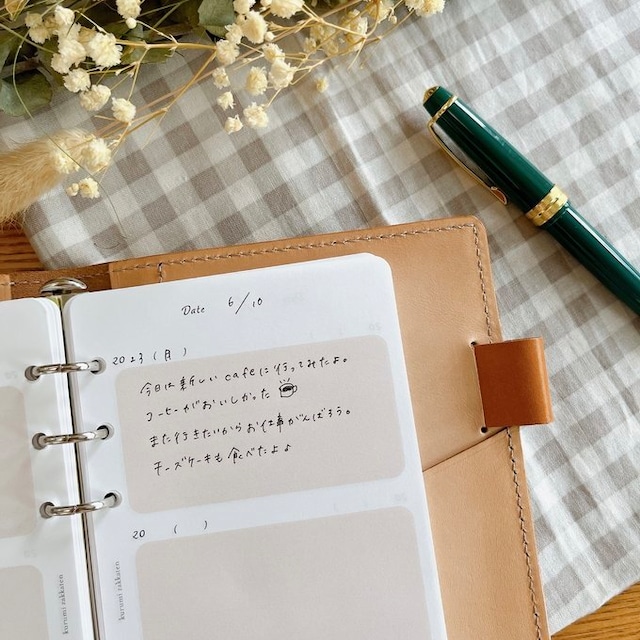 Date 6/10
2023(月)
今日は新しいcafeに行ってみたよ。
コーヒーがおいしかった
また行きたいからお仕事がんばろう。
チーズケーキも食べたよよ
20 ( )
kurumi rakkasen
kurumi rakkasen